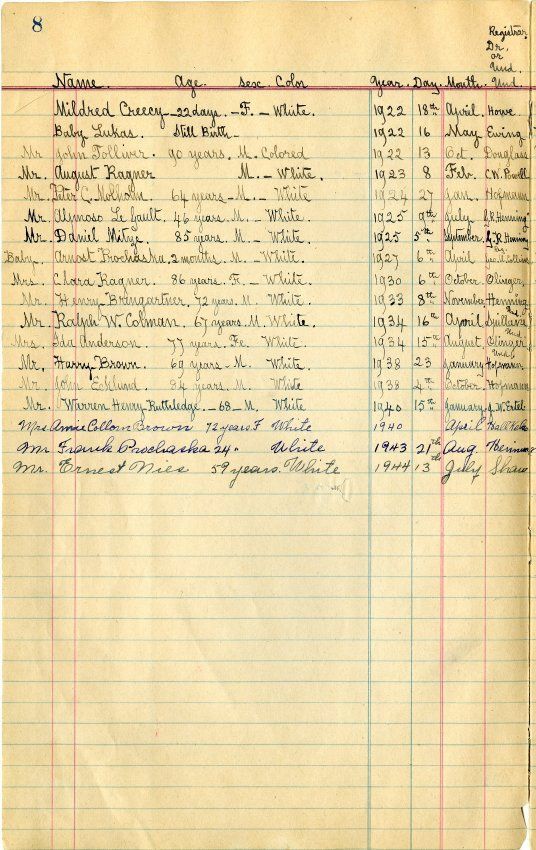 8
Registrar
Dr.
or
Und.
Name. Age. Sex. Color Year. Day. Month. Und.
Mildred Creecy - 22 days. - F. - White. 1922 18th April. Howe.
Baby Lukas. Still Birth - 1922 16 May Ewing
Mr. John Tolliver. 90 years. M. Colored 1922 13 Oct. Douglass
Mr. August Kagner M. - White. 1923 8 Feb. C.W. Powell
Mr. Peter C. Molholm. 64 years - M. - White 1924 27 Jan. Hofmann
Mr. Le Gault. 46 years. M. - White. 1925 9th July J.R. Henning
Mr. Daniel 85 years. M. - White. 1925 5th September J.R. Henning
Baby. Arnost Prochaska 2 months. M. - White. 1927 6th April
Mrs. Clara Kagner. 86 years. Fe. - White. 1930 6th October Olinger.
Mr. Henry Bringartner. 72 years. M. White. 1933 8th November Henning
Mr. Ralph W. Colman. 67 years. M. White. 1934 16th April
Mrs. Ida Anderson. 77 years. Fe. White. 1934 15th August Olinger
Mr. Harry Brown. 69 years. M. White. 1938 23 January Hofmann
Mr. John Ecklund. 84 years. M. White. 1938 4th October. Hofmann
Mr. Warren Henry Ruthledge. - 68 - M. White. 1940 15th January
Mrs Annie Collom Brown 72 years F White 1940 April
Mr Frank Prochaska 24 " White 1943 21th Aug. Henning
Mr. Ernest Nies 59 years. White 1944 13 July Shaw